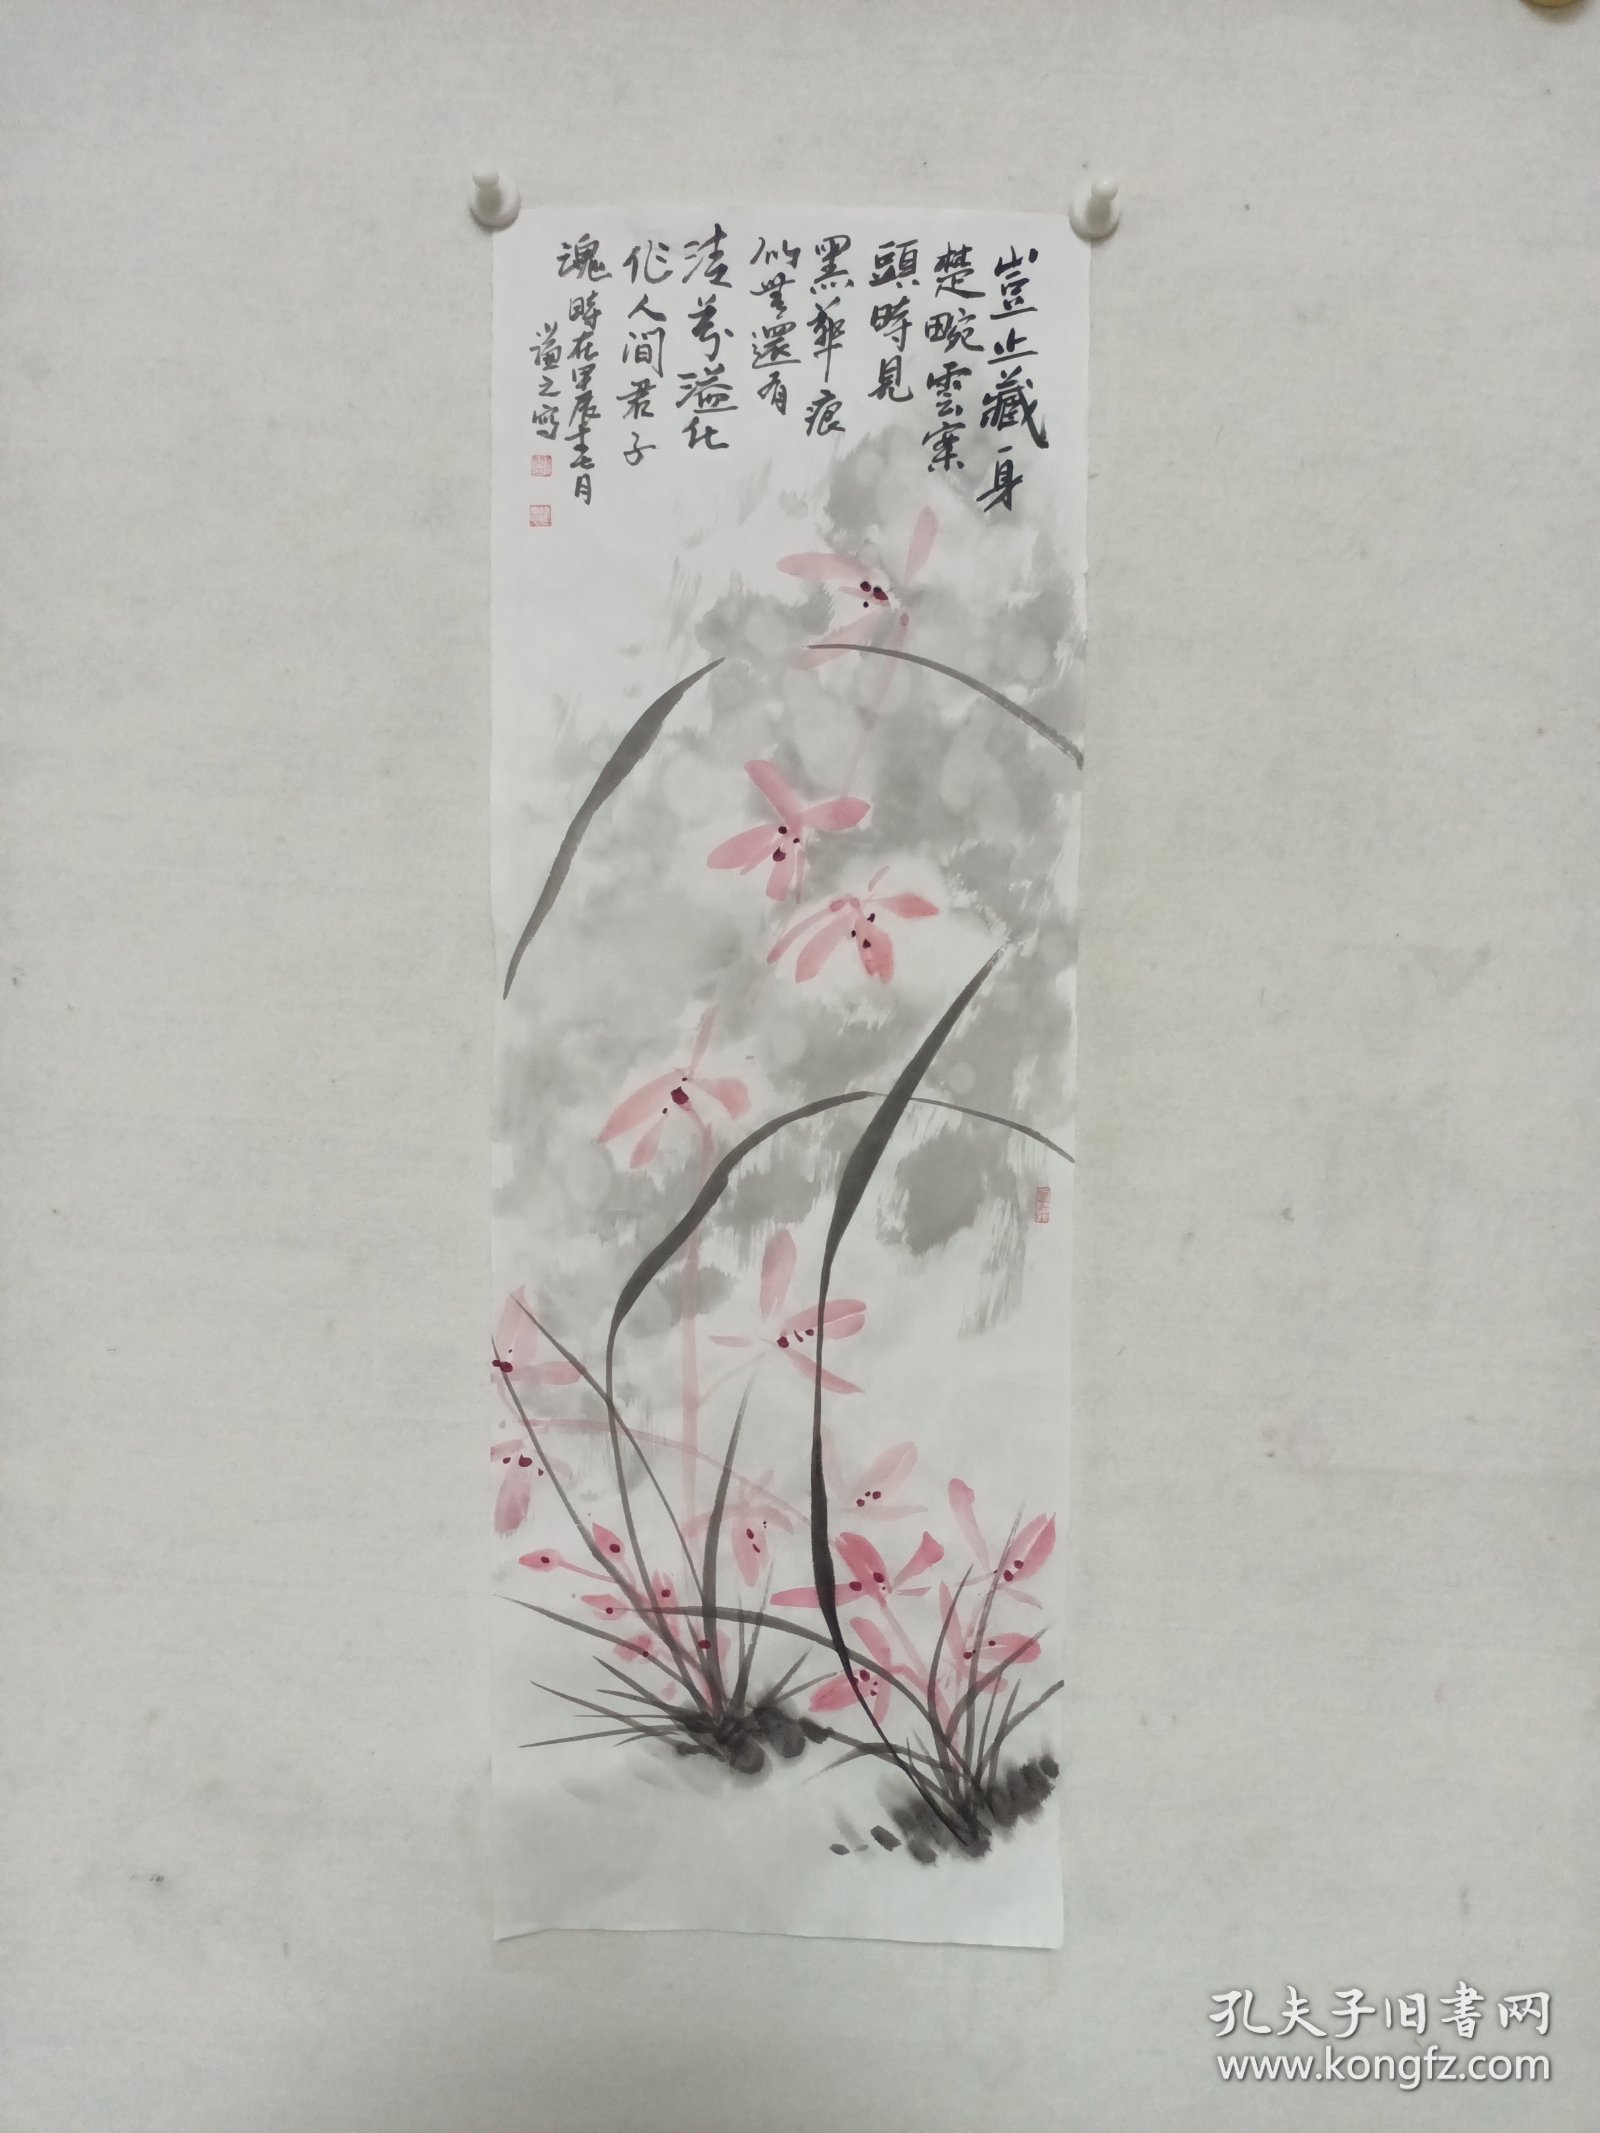 豈止藏身
楚畹雲案
頭時見
墨華痕
似無還有
清芬溢化
作人間君子
魂
時在甲辰十二月
謙之寫
孔夫子旧書网
www.kongfz.com